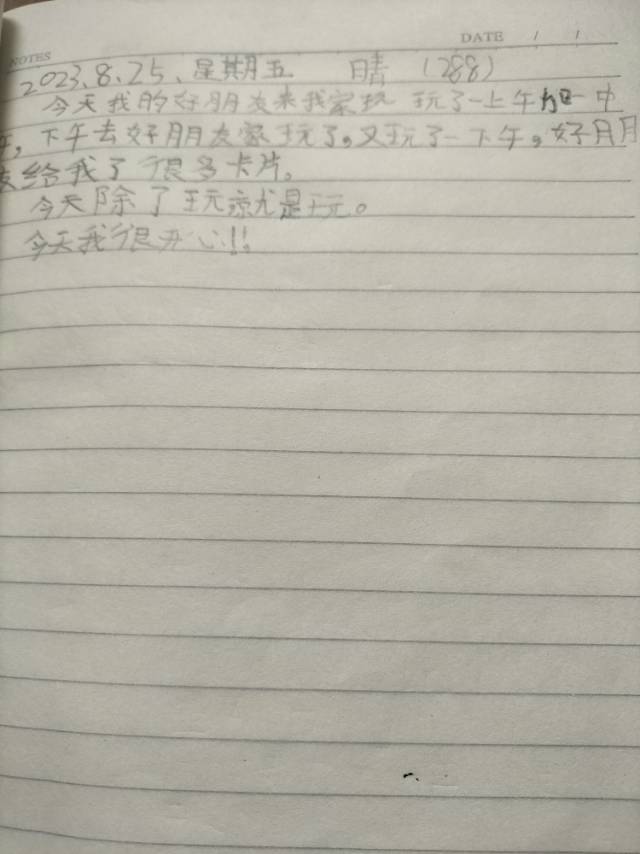 NOTES
DATE / /
2023.8.25. 星期五 晴 (288)
今天我的好朋友来我家玩 玩了一上午加一中
午，下午去好朋友家玩了。又玩了一下午，好朋
友给我了很多卡片。
今天除了玩就是玩。
今天我很开心!!